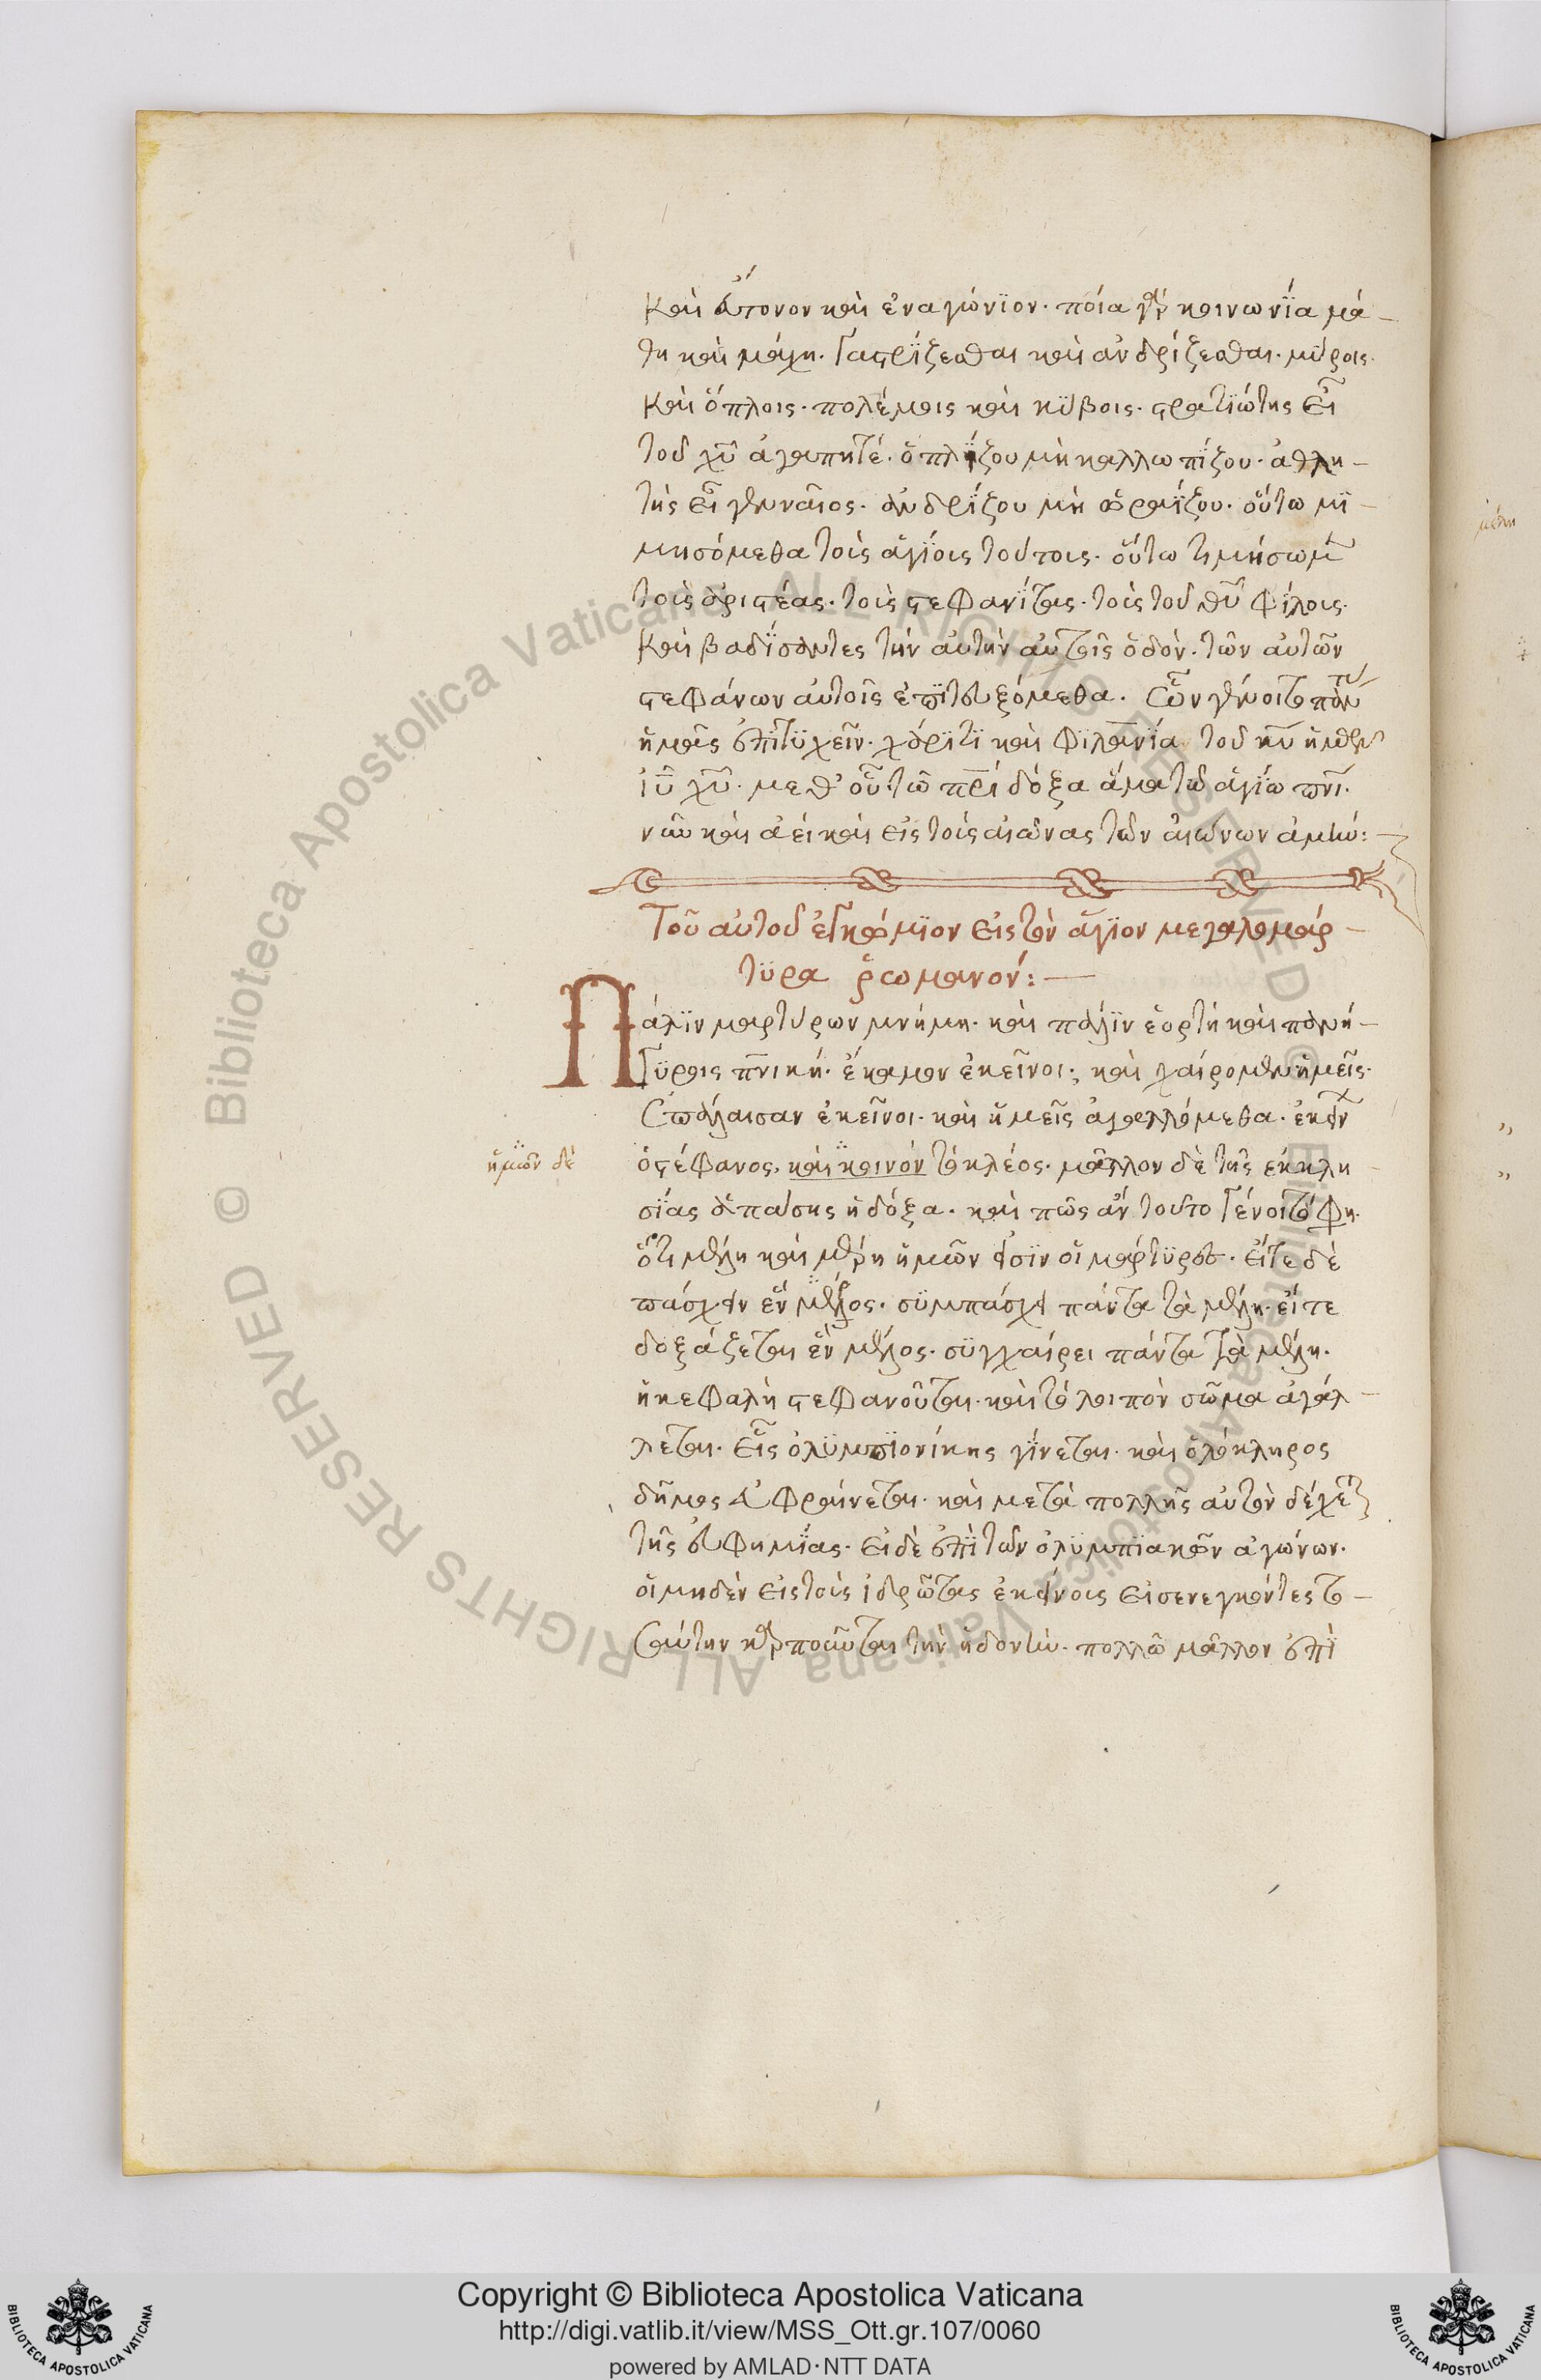 καὶ ἄπονον καὶ ἐναγώνϊον· ποία γὰρ κοινωνΐα μέ-
θη καὶ μάχη· γαστρίζεσθαι καὶ ἀνδρίζεσθαι· μύροις·
καὶ ὅπλοις· πολέμοις καὶ κύβοις· στρατϊώτης εἶ
τοῦ χῦ ἀγαπητέ· ὁπλίζου μὴ καλλωπίζου· ἀθλη-
τὴς εἶ γενναῖος· ἀνδρΐζου μὴ ὡραΐζου· οὕτω μϊ-
μησόμεθα τοὺς ἁγΐους τούτους· οὕτω τιμήσωμ
τοὺς ἀριστέας· τοὺς στεφανΐτας· τοὺς τοῦ θῦ φΐλους·
καὶ βαδΐσαντες τὴν αὐτὴν αὐτοῖς ὁδὸν· τῶν αὐτῶν
στεφάνων αὐτοῖς ἐπϊτευξόμεθα. ὧν γένοιτο πάν
ἡμᾶς ἐπϊτϋχεῖν· χάρϊτϊ καὶ φϊλανΐα τοῦ κῦ ἡμῶν
ἰῦ χῦ· μεθ' οὗ τῶ πρὶ δόξα ἅμα τῶ ἁγΐω πνι·
νῦν καὶ ἀεὶ καὶ εἰς τοὺς αἰῶνας τῶν αἰώνων ἀμήν:
Τοῦ αὐτοῦ ἐγκώμϊον εἰς τὸν ἅγϊον μεγαλομάρ-
τϋρα ῥωμανόν:—
Πάλϊν μαρτύρων μνήμη· καὶ πάλϊν ἑορτὴ καὶ πανή-
γϋρις πνικὴ· ἔκαμον ἐκεῖνοι· καὶ χαίρομεν ἡμεῖς·
ἐπάλαισαν ἐκεῖνοι· καὶ ἡμεῖς ἀγαλλόμεθα· ἐκείν
ἡμῶν δὲ
ὁ στέφανος, καὶ κοινὸν τὸ κλέος· μᾶλλον δὲ τῆς ἐκκλη
σΐας ἁπάσης ἡ δόξα· καὶ πῶς ἂν τοῦτο γένοιτό φη·
ὅτι μέλη καὶ μέρη ἡμῶν εἰσϊν οἱ μάρτϋρες· εἴτε δὲ
πάσχειν ἓν μέλος· συμπάσχει πάντα τὰ μέλη· εἴτε
δοξάζεται ἓν μέλος· συγχαίρει πάντα τὰ μέλη·
ἡ κεφαλὴ στεφανοῦται· καὶ τὸ λοιπὸν σῶμα ἀγάλ-
λεται· εἷς ὀλϋμπϊονίκης γΐνεται· καὶ ὁλόκληρος
δῆμος εὐφραίνεται· καὶ μετὰ πολλῆς αὐτὸν δέχετ
τῆς εὐφημΐας· εἰ δὲ ἐπϊ τῶν ὀλϋμπϊακῶν ἀγώνων·
οἱ μηδὲν εἰς τοὺς ἱδρῶτας ἐκείνους εἰσενεγκόντες το-
σαύτην καρποῦνται τὴν ἡδονὴν· πολλῶ μᾶλλον ἐπϊ
Copyright © Biblioteca Apostolica Vaticana
http://digi.vatlib.it/view/MSS_Ott.gr.107/0060
powered by AMLAD·NTT DATA